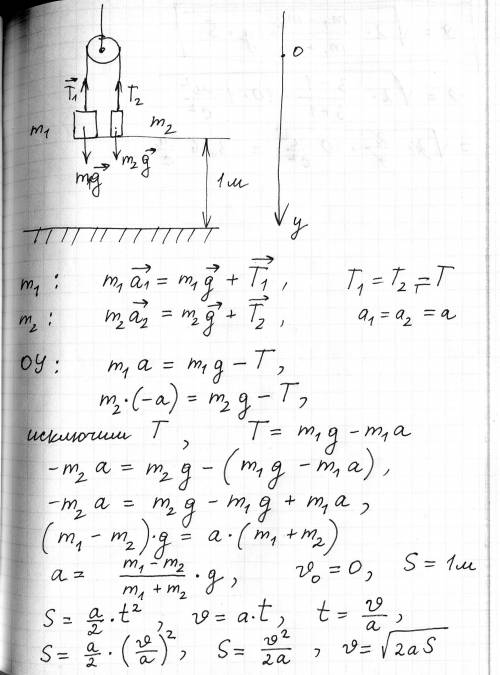 0
T⃗₁ T₂
m₁ m₂
m₁g⃗ m₂g⃗
1м
y
m₁: m₁a⃗₁ = m₁g⃗ + T⃗₁, T₁ = T₂ = T
m₂: m₂a⃗₂ = m₂g⃗ + T⃗₂, a₁ = a₂ = a
OY: m₁a = m₁g − T,
m₂·(−a) = m₂g − T,
исключим T, T = m₁g − m₁a
−m₂a = m₂g − (m₁g − m₁a),
−m₂a = m₂g − m₁g + m₁a,
(m₁ − m₂)·g = a·(m₁ + m₂)
a = (m₁ − m₂)/(m₁ + m₂) · g, v₀ = 0, S = 1м
S = a/2 · t², v = a·t, t = v/a,
S = a/2 · (v/a)², S = v²/2a, v = √2aS